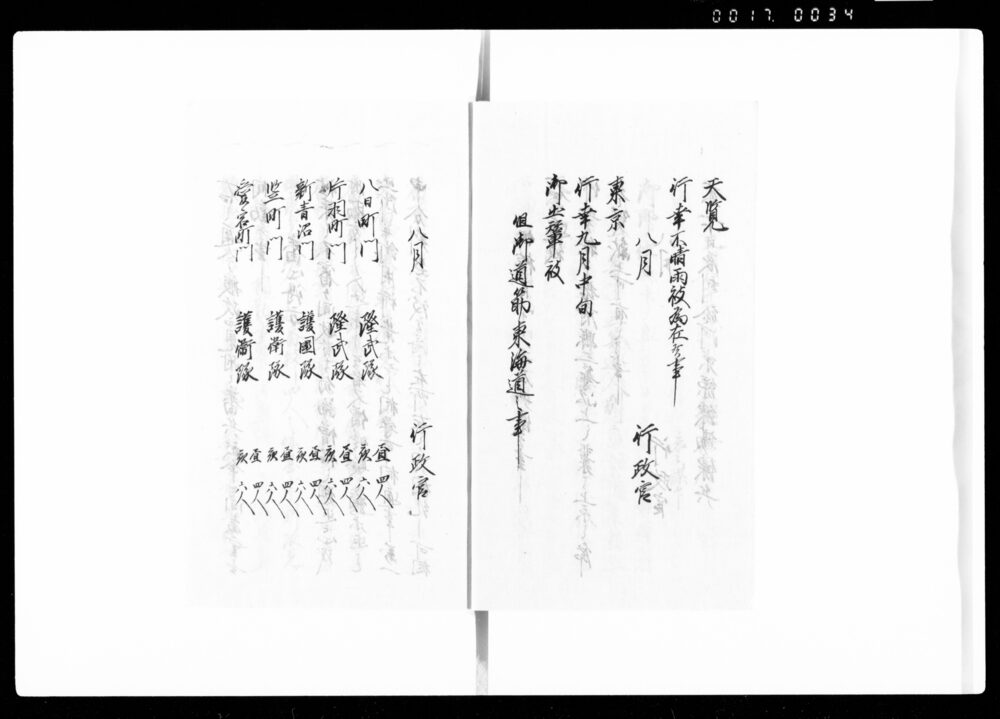 0017. 0034
天覧
行幸不晴雨被為在候事
八月
行政官
東京
行幸九月中旬
御出輦被
但御道筋東海道之事
八月
行政官
八日町門 隆武隊 昼四人 夜六人
片羽町門 隆武隊 昼四人 夜六人
新青沼門 護国隊 昼四人 夜六人
竪町門 護衛隊 昼四人 夜六人
愛宕町門 護衛隊 昼四人 夜六人